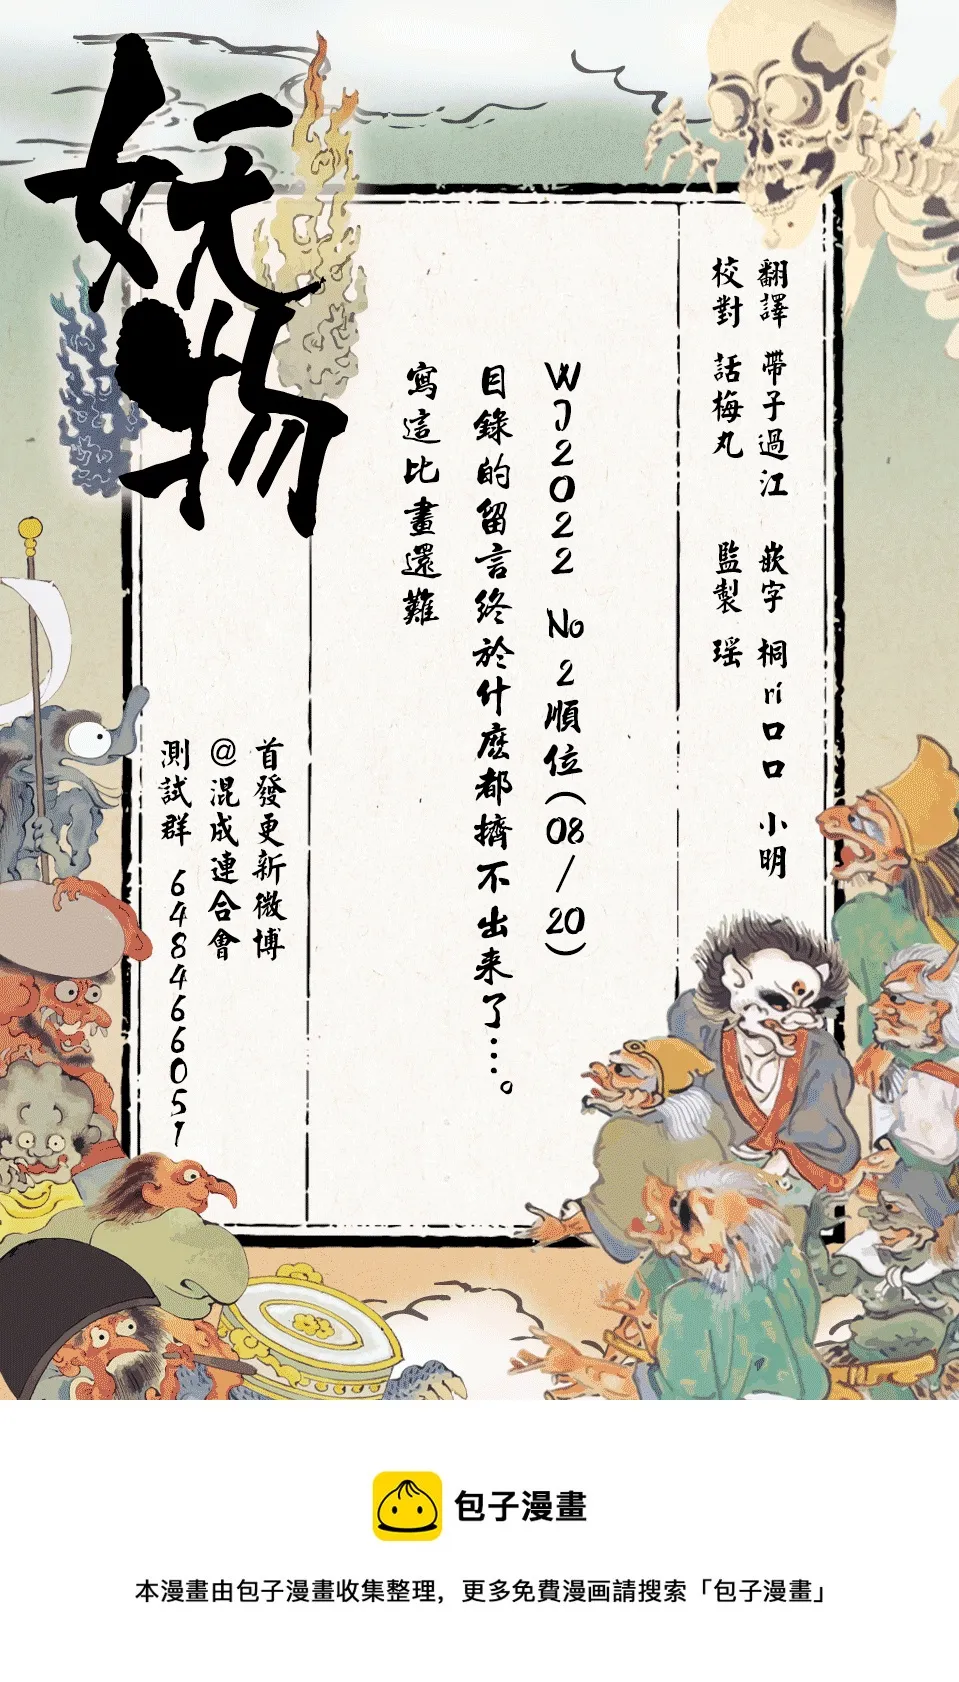 妖物
翻譯 帶子過江 嵌字 桐ri口口 小明
校對 話梅丸 監製 瑶
WJ2022 No 2順位(08/20)
目錄的留言終於什麽都擠不出来了…。
寫這比畫還難
首發更新微博
@混成連合會
測試群 648466051
包子漫畫
本漫畫由包子漫畫收集整理，更多免費漫画請搜索「包子漫畫」